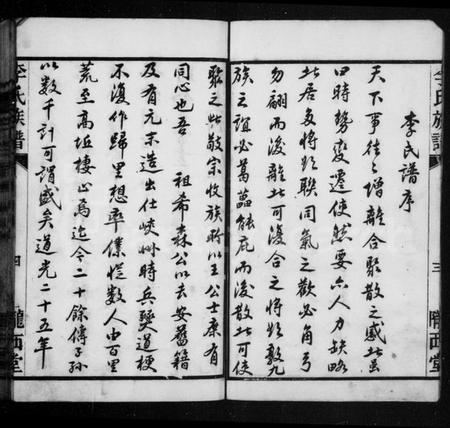 李氏族譜
三
隴西堂
李氏譜序
天下事往々增離合聚散之感此虽
曰時勢變遷使然要亦人力缺略
此居多將欲联同氣之歡必角弓
勿翩而後離此可復合之將欲敦九
族之誼必葛藟能庇而後散此可使
聚之此敬宗收族所以王公士庶有
同心也吾　祖希森公以去安舊籍
及有元末造出仕峽州時兵燹道梗
不復作歸里想率僕從数人由百里
荒至高坵棲止焉迄今二十餘傳子孫
以数千計可謂盛矣道光二十五年
李氏族譜
四
隴西堂